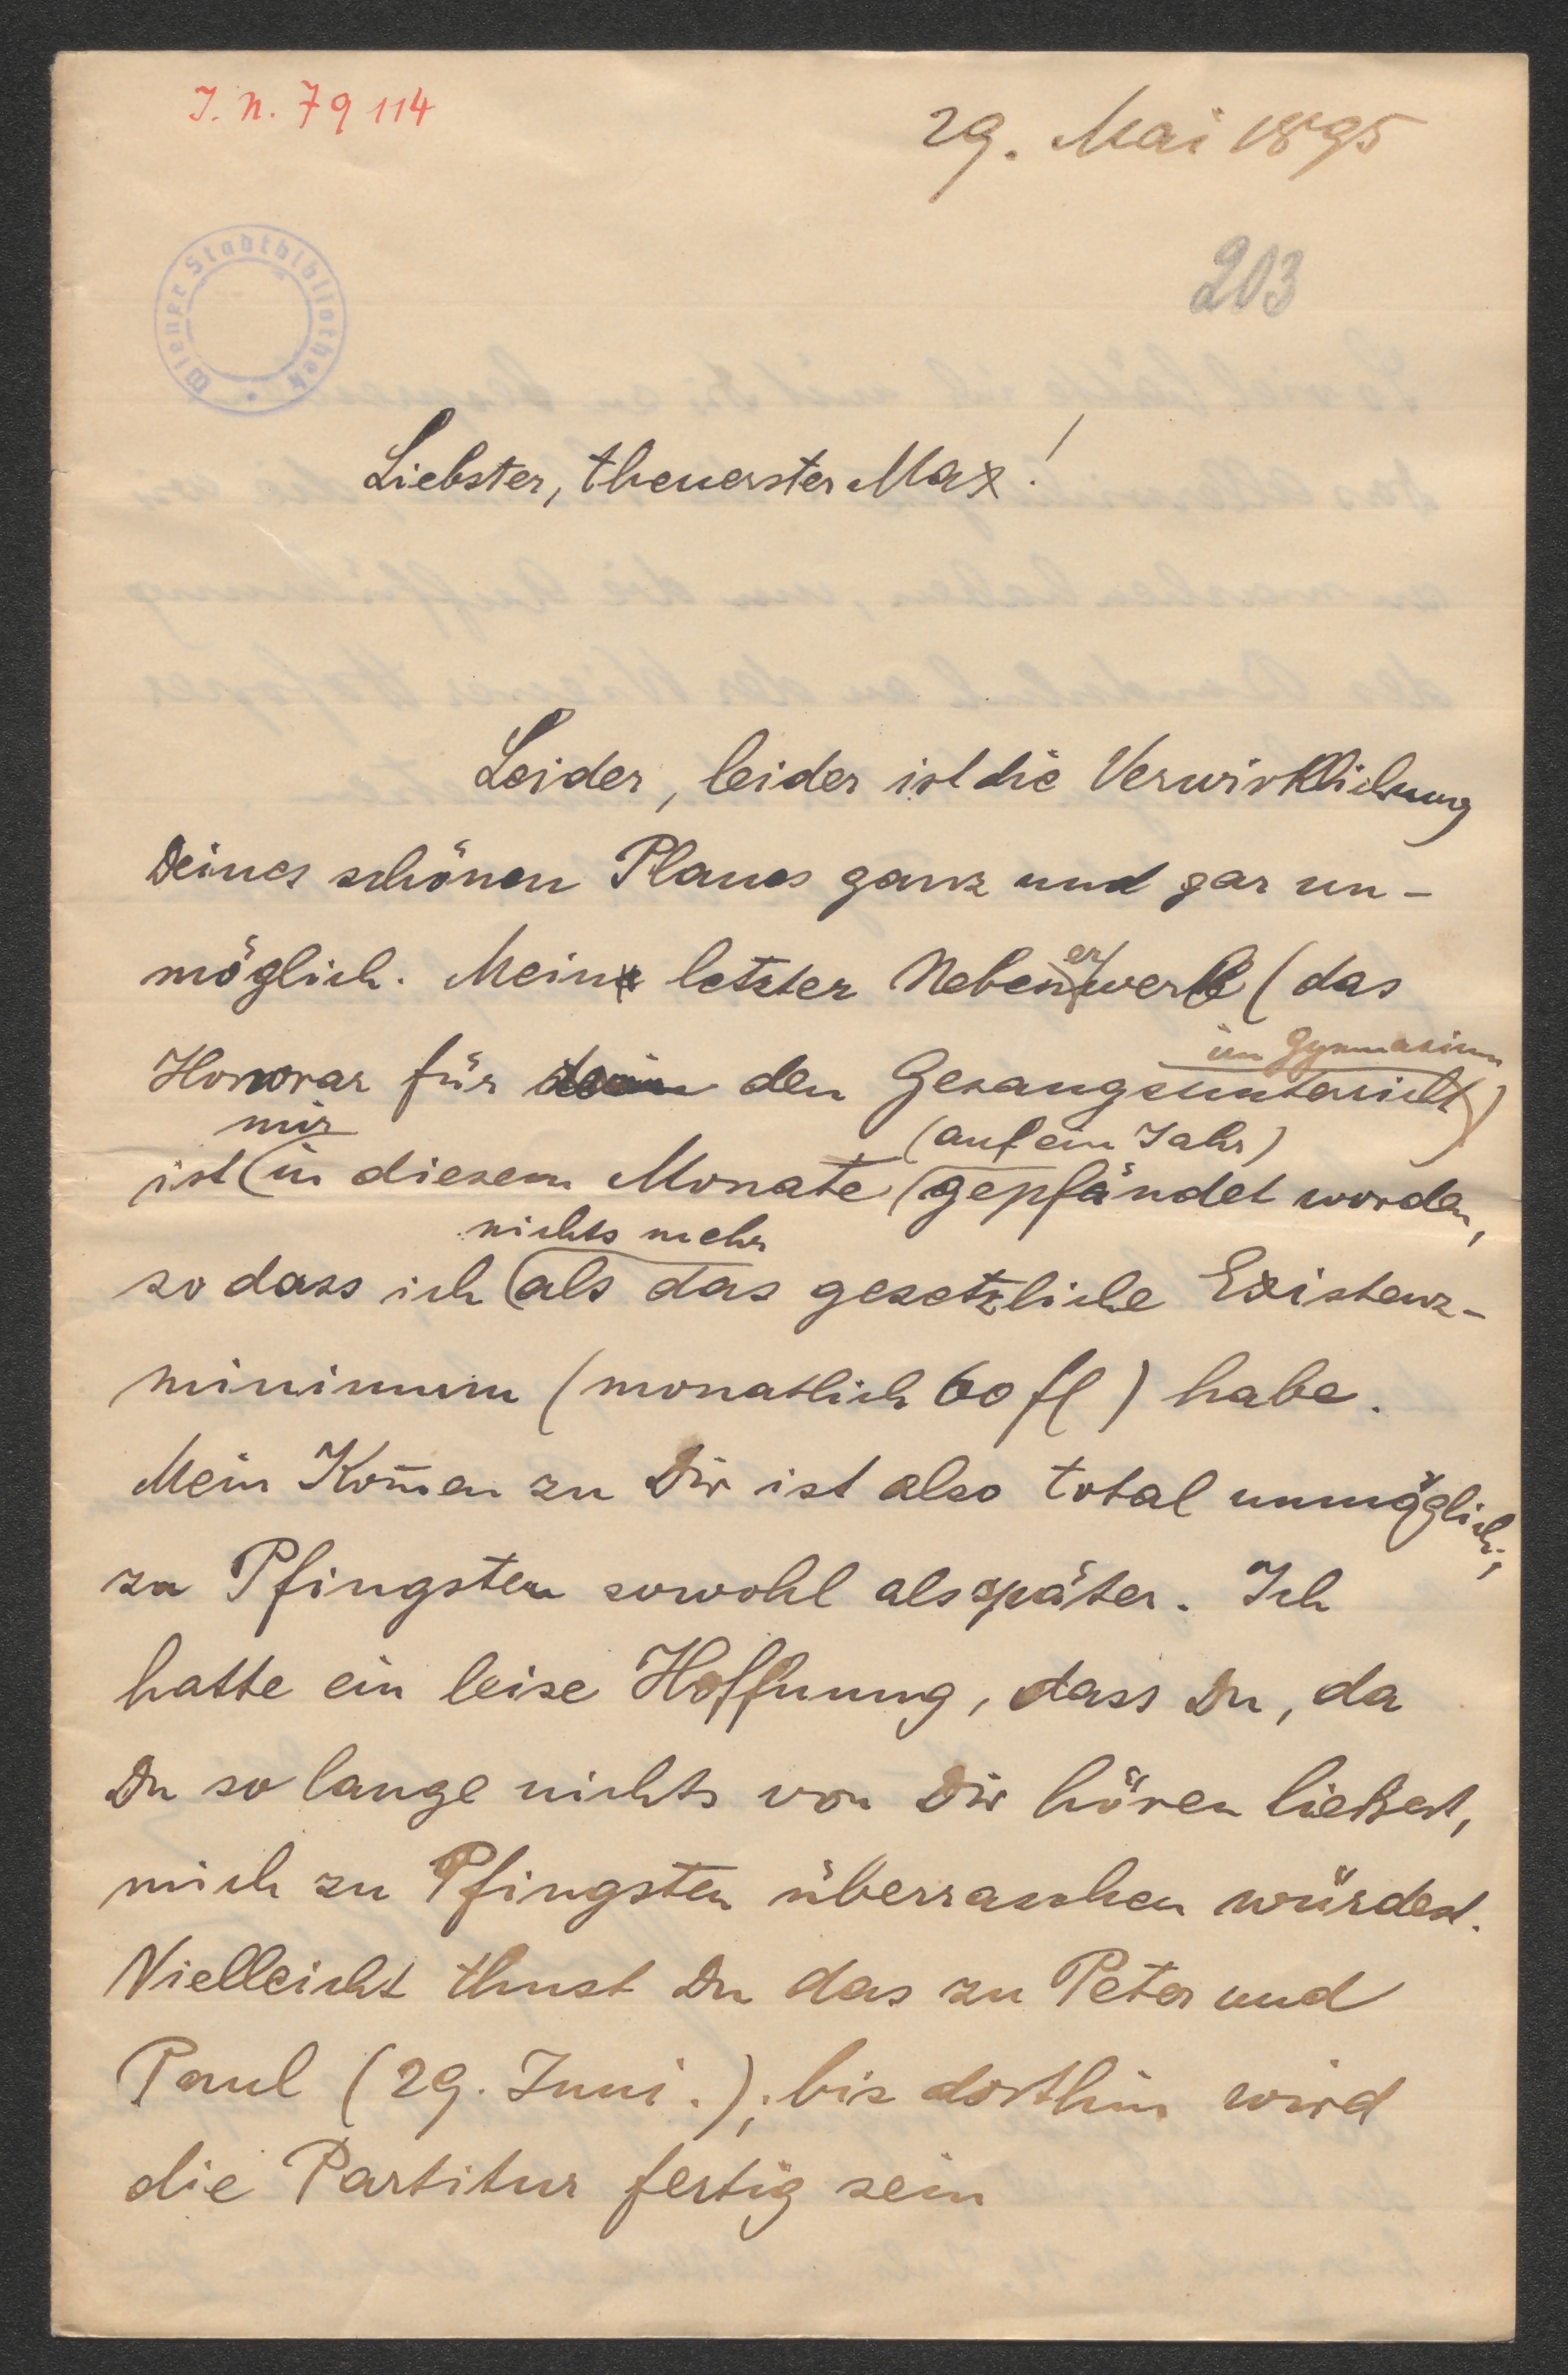 J. N. 79114
29. Mai 1895
203
Wiener Stadtbibliothek
Liebster, theuerster Max!
Leider, leider ist die Verwirklichung
Deines schönen Planes ganz und gar un-
möglich. Mein letzter Nebenerwerb (das
Honorar für den Gesangsunterricht im Gymnasium)
ist mir in diesem Monate (auf ein Jahr) gepfändet worden,
so dass ich nichts mehr als das gesetzliche Existenz-
minimum (monatlich 60 fl) habe.
Mein Kom̅en zu Dir ist also total unmöglich;
zu Pfingsten sowohl als später. Ich
hatte ein leise Hoffnung, dass Du, da
Du so lange nichts von Dir hören ließest,
mich zu Pfingsten überraschen würdest.
Vielleicht thust Du das zu Peter und
Paul (29. Juni.); bis dorthin wird
die Partitur fertig sein